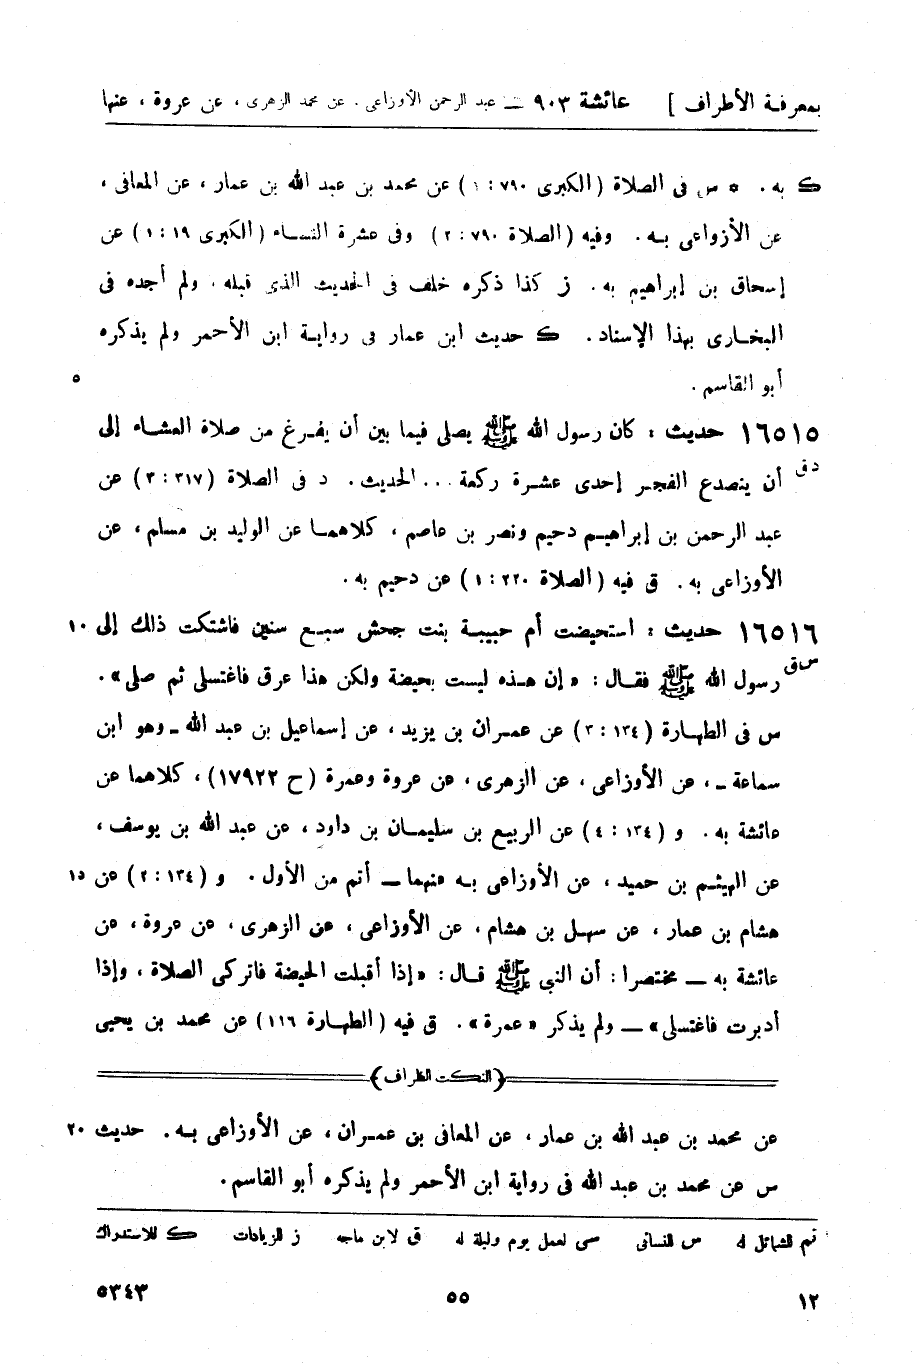 بمعرفة الأطراف ] عائشة ٩٠٣ ــ عبد الرحمن الأوزاعى . عن محمد الزهرى ، عن عروة ، عنها
ك به . * س فى الصلاة (الكبرى ٧٩٠ : ١) عن محمد بن عبد الله بن عمار ، عن المعافى ،
عن الأزواعى بـه . وفيه (الصلاة ٧٩٠ : ٢) وفى عشرة النساء (الكبرى ١٩ : ١) عن
إسحاق بن إبراهيم به . ز كذا ذكره خلف فى الحديث الذى قبله . ولم أجده فى
البخـارى بهذا الإسناد . ك حديث ابن عمار فى روايـة ابن الأحمر ولم يذكره
أبو القاسم . ٥
١٦٥١٥ حديث : كان رسول الله ﷺ يصلى فيما بين أن يفـرغ من صلاة العشـاء إلى
دق أن ينصدع الفجـر إحدى عشـرة ركعة ... الحديث . د فى الصلاة (٣١٧ : ٣) عن
عبد الرحمن بن إبراهيـم دحيم ونصر بن عاصم ، كلاهمـا عن الوليد بن مسلم ، عن
الأوزاعى به . ق فيه (الصلاة ٢٢٠ : ١) عن دحيم به .
١٦٥١٦ حديث : استحيضت أم حبيبـة بنت جحش سبـع سنين فاشتكت ذلك إلى ١٠
س ق رسول الله ﷺ فقـال : «إن هـذه ليست بحيضة ولكن هذا عرق فاغتسلى ثم صلى» .
س فى الطهـارة (١٣٤ : ٣) عن عمـران بن يزيد ، عن إسماعيل بن عبد الله ـ وهو ابن
سماعة ـ ، عن الأوزاعى ، عن الزهرى ، عن عروة وعمرة (ح ١٧٩٢٢) ، كلاهما عن
عائشة به . و (١٣٤ : ٤) عن الربيع بن سليمـان بن داود ، عن عبد الله بن يوسف ،
عن الهيثـم بن حميد ، عن الأوزاعى بـه منهما ــ أتم من الأول . و (١٣٤ : ٢) عن ١٥
هشام بن عمار ، عن سهـل بن هشام ، عن الأوزاعى ، عن الزهرى ، عن عروة ، عن
عائشة به ــ مختصرا : أن النبى ﷺ قـال : «إذا أقبلت الحيضة فاتركى الصلاة ، وإذا
أدبرت فاغتسلى» ــ ولم يذكر «عمرة» . ق فيه (الطهـارة ١١٦) عن محمد بن يحيى
(النكت الظراف)
عن محمد بن عبد الله بن عمار ، عن المعافى بن عمـران ، عن الأوزاعى بـه . حديث ٢٠
س عن محمد بن عبد الله فى رواية ابن الأحمر ولم يذكره أبو القاسم .
تم للشمائل له س للنسائى سى لعمل يوم وليلة له ق لابن ماجه ز للزيادات ك للاستدراك
١٢ ٥٥ ٥٣٤٣